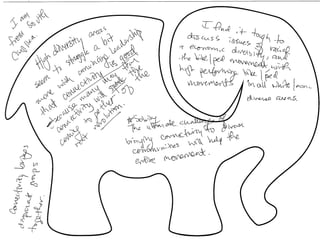 I am
from South
High diversity areas
seem to struggle a bit
more with on/ship leadership
that connectivity is good
because many think
connectivity will
come to gether of the
not resolution.
I find it tough to
discuss issues of race
+ economic diversity and
the bike/ped movement with
high performing bike/ped
movements in all white/non
diverse areas.
The ultimate challenge of
bringing connectivity to diverse
communities will help the
entire movement.
Connectivity brings
disparate groups
together.